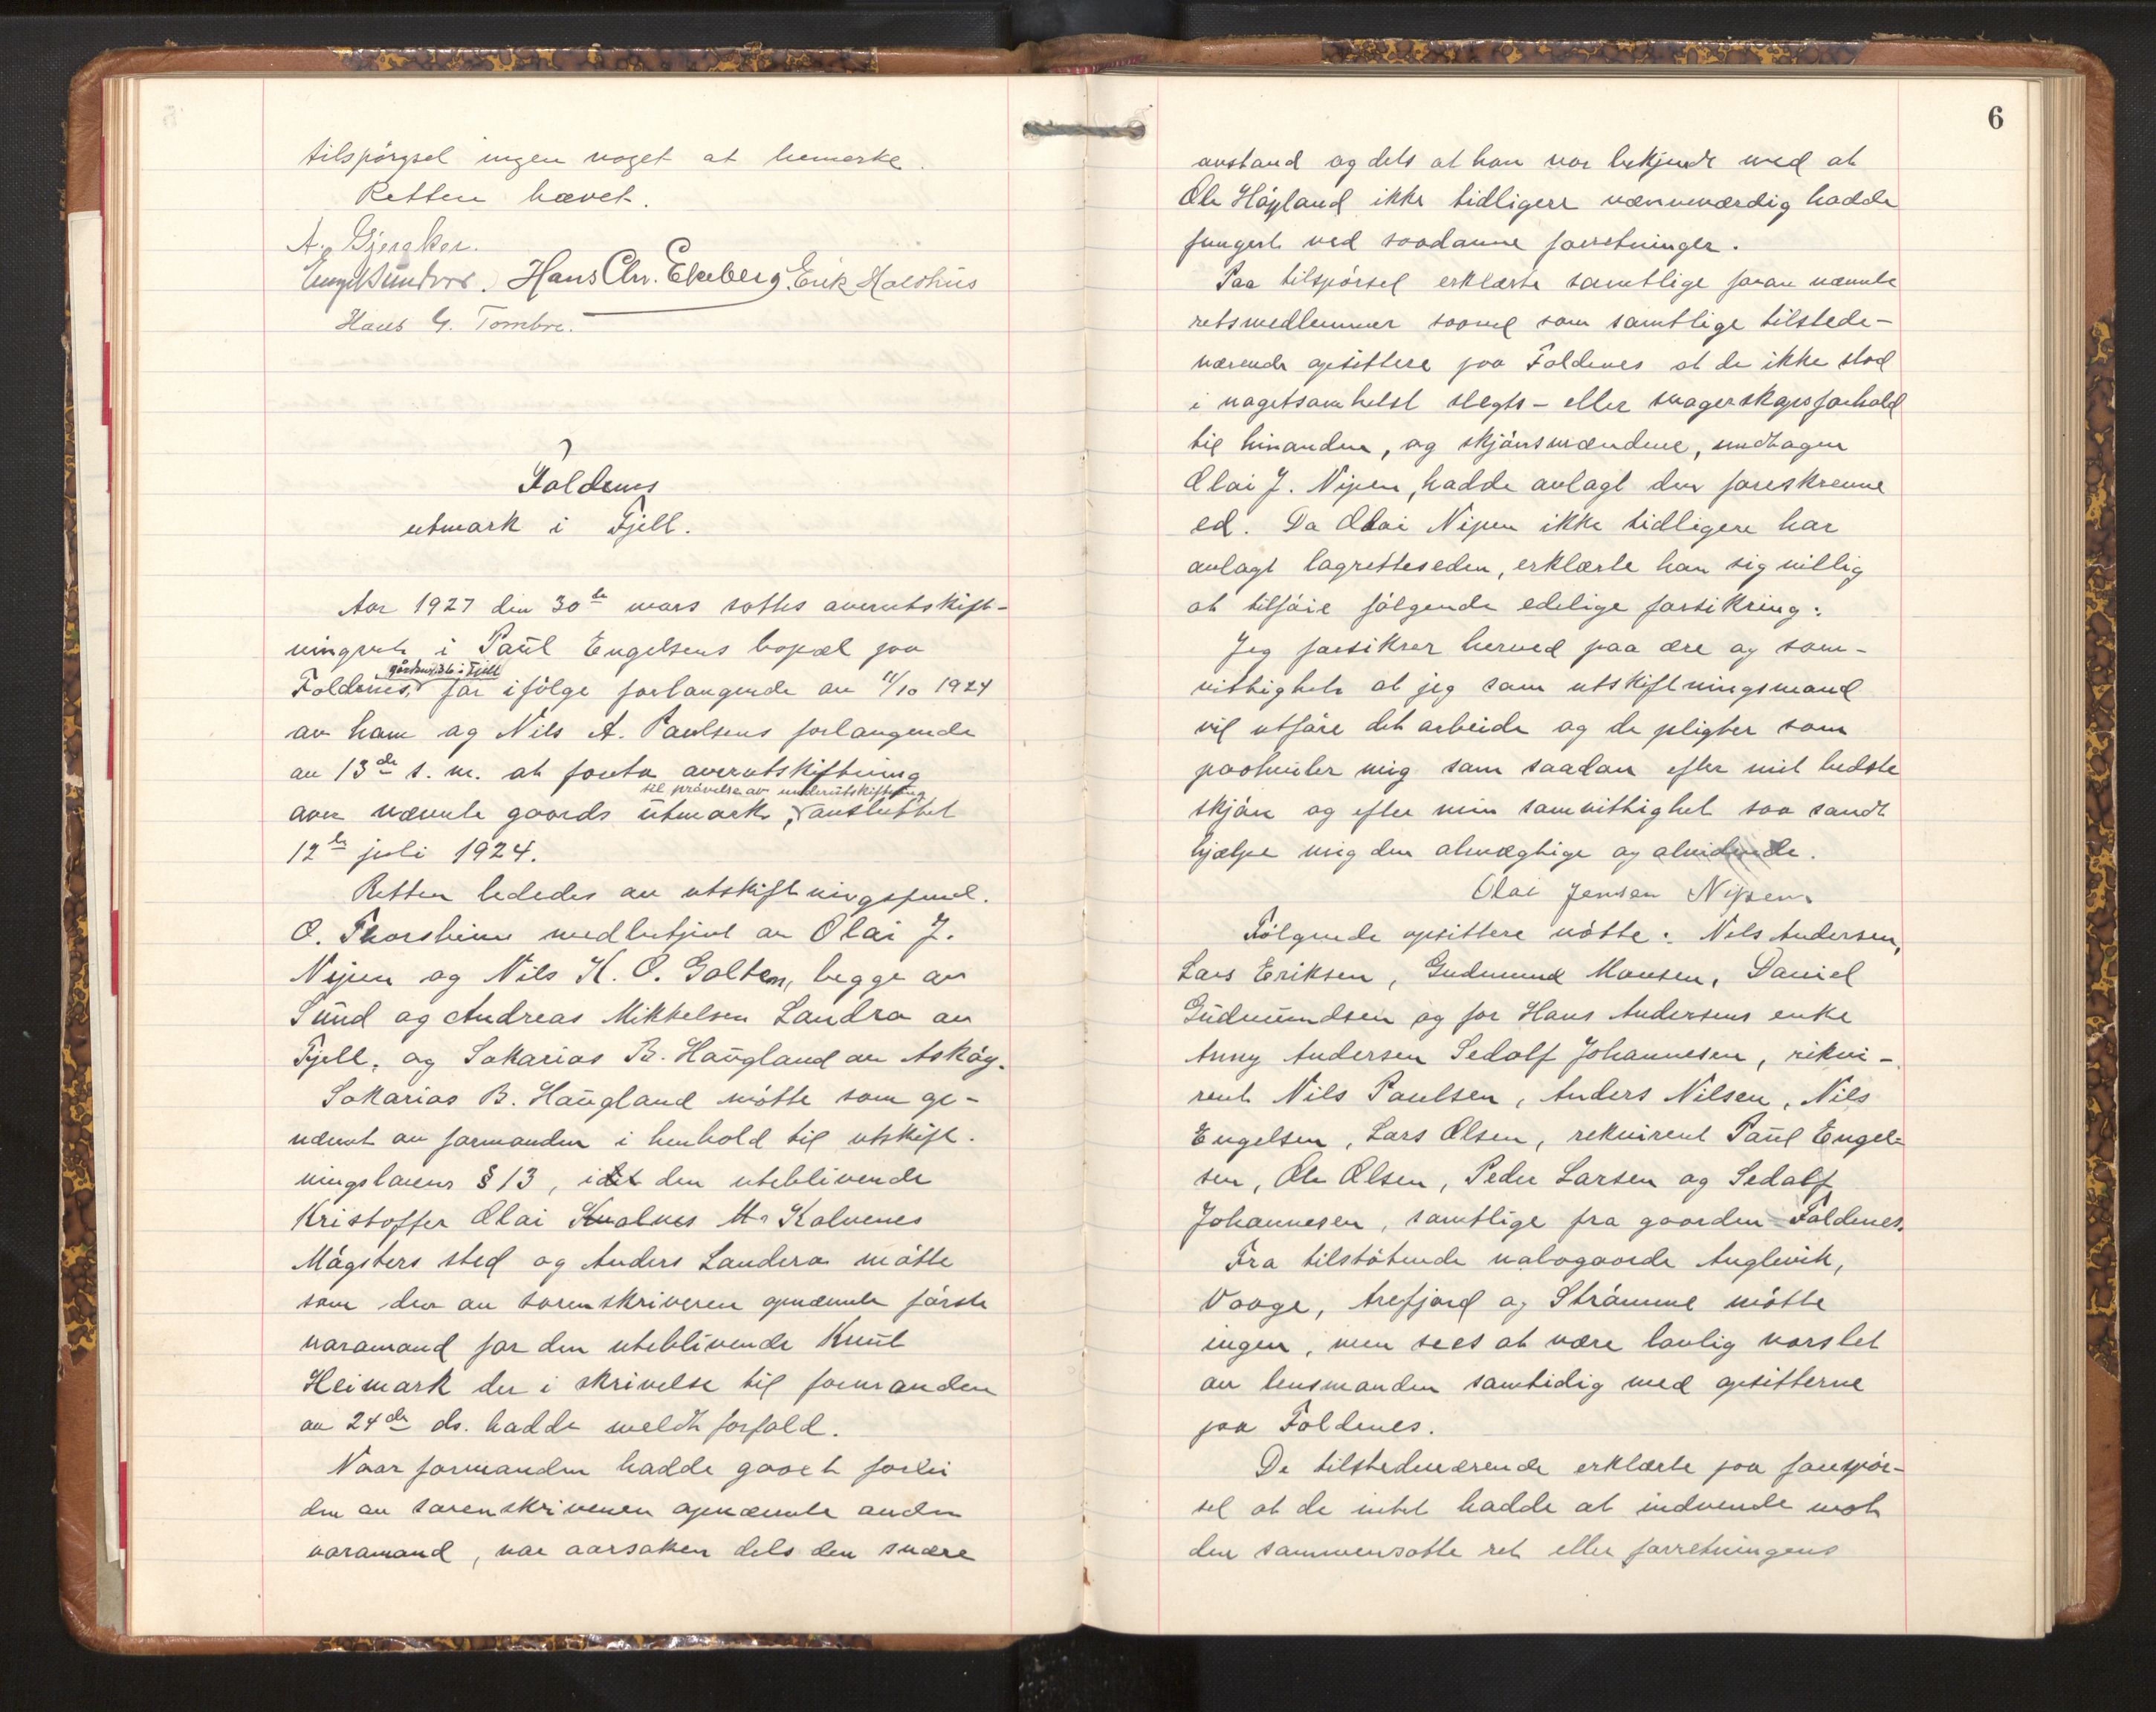 tilspörgsel ingen noget at bemerke.
Retten hævet.
A. Gjeraker.
Hans Chr. Ekeberg. Erik Halshus
Hans G. Tombre.
Foldenes
utmark i Fjell.
Aar 1927 den 30te mars sattes overutskift-
ningsret i Paul Engelsens bopæl paa
gårdsnr. 36 i Fjell
Foldenes, for ifölge forlangende av 11/10 1924
av ham og Nils A. Paulsens forlangende
av 13de s.m. at foreta overutskiftning
til prövelse av underutskiftning
over nævnte gaards utmark, avsluttet
12te juli 1924.
Retten lededes av utskiftningsfuld.
O. Thorsheim medbetjent av Olai J.
Nipen og Nils K. O. Golten, begge av
Sund og Andreas Mikkelsen Landro av
Fjell, og Sakarias B. Haugland av Asköy.
Sakarias B. Haugland mötte som op-
nævnt av formanden i henhold til utskift-
ningslovens § 13, idet den uteblivende
Kristoffer Olai Kvalnes Kalvenes
Mögsters sted og Anders Landero mötte
som den av sorenskriveren opnævnte förste
varamand for den uteblivende Knut
Heimark der i skrivelse til formanden
av 24de ds. hadde meldt forfald.
Naar formanden hadde gaaet forbi
den av sorenskriveren opnævnte anden
varamand, var aarsaken dels den svære
6
avstand og dels at han var bekjendt med at
Ole Höyland ikke tidligere nævneværdig hadde
fungert ved saadanne forretninger.
Paa tilspörsel erklærte samtlige foran nævnte
retsmedlemmer saavel som samtlige tilstede-
værende opsittere paa Foldenes at de ikke stod
i nogetsomhelst slegts- eller svogerskapsforhold
til hinanden, og skjönsmændene, undtagen
Olai J. Nipen, hadde avlagt den foreskrevne
ed. Da Olai Nipen ikke tidligere har
avlagt lagretteseden, erklærte han sig villig
at tilföie fölgende edelige forsikring:
Jeg forsikrer herved paa ære og sam-
vittighet at jeg som utskiftningsmand
vil utföre det arbeide og de pligter som
paahviler mig som saadan efter mit bedste
skjön og efter min samvittighet saa sandt
hjælpe mig den almægtige og alvidende.
Olai Jensen Nipen.
Fölgende opsittere mötte: Nils Andersen,
Lars Eriksen, Gudmund Monsen, Daniel
Gudmundsen og for Hans Andersens enke
Anny Andersen Sedolf Johannesen, rikvi-
rent Nils Paulsen, Anders Nilsen, Nils
Engelsen, Lars Olsen, rekvirent Paul Engel-
sen, Ole Olsen, Peder Larsen og Sedolf
Johannesen, samtlige fra gaarden Foldenes.
Fra tilstötende nabogaarde Anglevik,
Vaage, Arefjord og Strömme mötte
ingen, men sees at være lovlig varslet
av lensmanden samtidig med opsitterne
paa Foldenes.
De tilstedeværende erklærte paa forespör-
sel at de intet hadde at indvende mot
den sammensatte ret eller forretningens